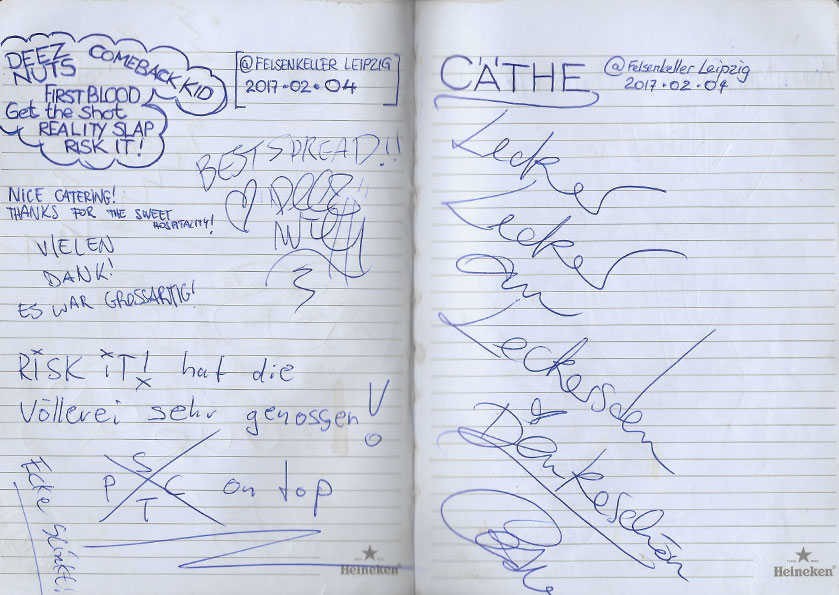 DEEZ
NUTS
COMEBACK KID
FIRST BLOOD
Get the Shot
REALITY SLAP
RISK IT!
@FELSENKELLER LEIPZIG
2017·02·04
BEST SPREAD!!
DEEZ
NUTS
NICE CATERING!
THANKS FOR THE SWEET
HOSPITALITY!
VIELEN
DANK!
ES WAR GROSSARTIG!
RISK IT! hat die
Völlerei sehr genossen!
S
P C on top
T
Ecke stinkt!
Heineken
CÄTHE
@Felsenkeller Leipzig
2017·02·04
Lecker
Lecker
am
Leckersden
Dankeschön
Cäthe
Heineken